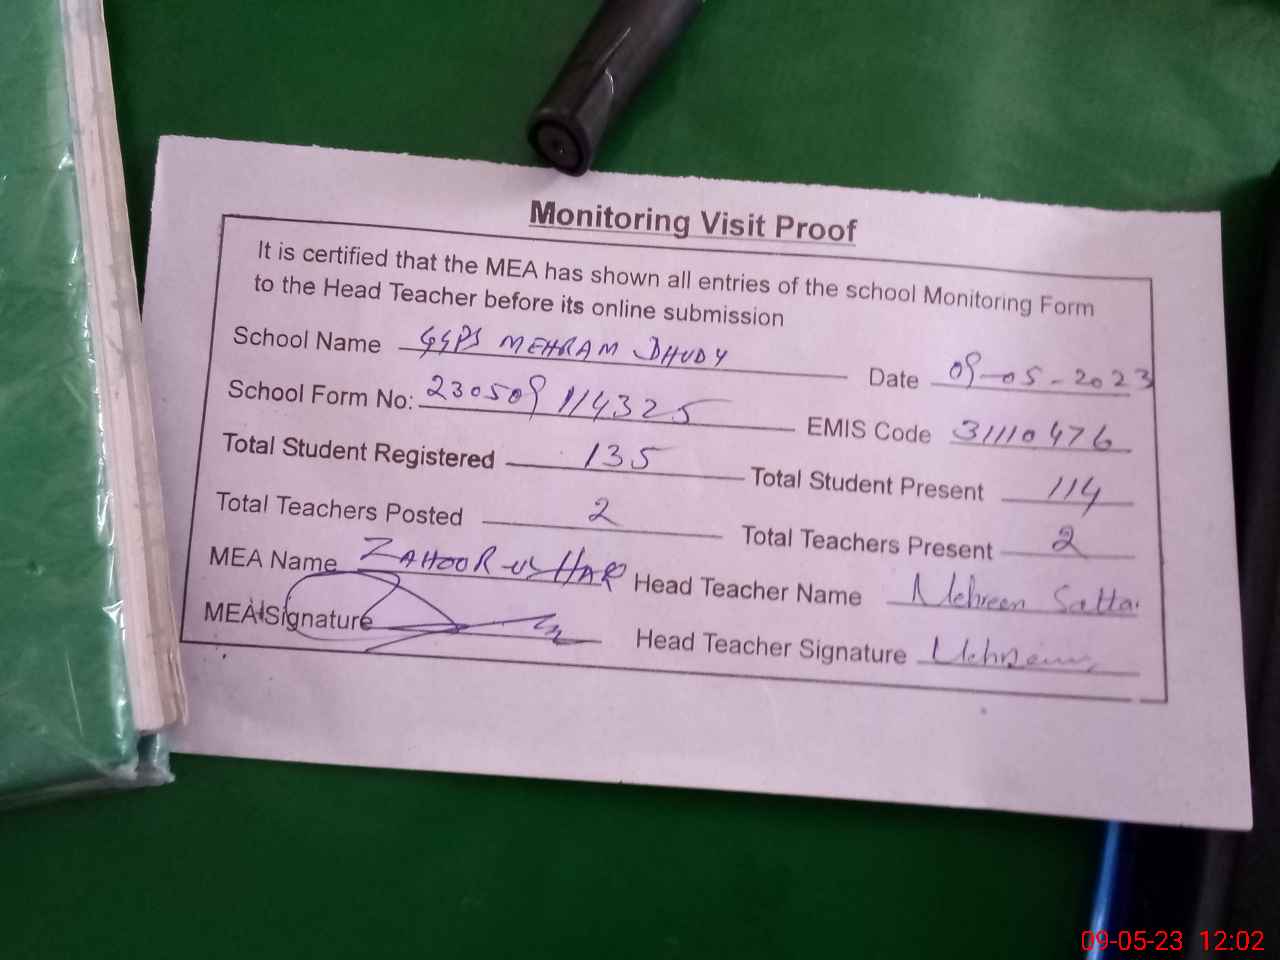 Monitoring Visit Proof
It is certified that the MEA has shown all entries of the school Monitoring Form
to the Head Teacher before its online submission
School Name GGPS MEHRAM DHUDY Date 09-05-2023
School Form No: 230509114325 EMIS Code 31110476
Total Student Registered 135 Total Student Present 114
Total Teachers Posted 2 Total Teachers Present 2
MEA Name ZAHOOR-UL-HAR Head Teacher Name Mehreen Sattar
MEA Signature Head Teacher Signature
09-05-23 12:02